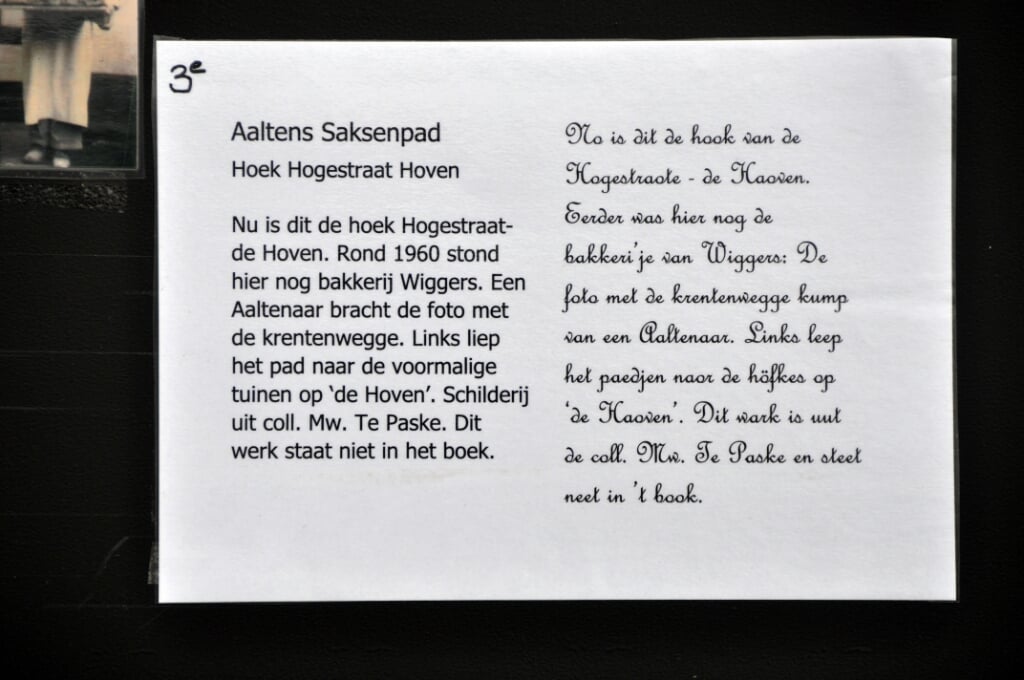 3e
Aaltens Saksenpad
Hoek Hogestraat Hoven
Nu is dit de hoek Hogestraat-
de Hoven. Rond 1960 stond
hier nog bakkerij Wiggers. Een
Aaltenaar bracht de foto met
de krentenwegge. Links liep
het pad naar de voormalige
tuinen op ‘de Hoven’. Schilderij
uit coll. Mw. Te Paske. Dit
werk staat niet in het boek.
No is dit de hook van de
Hogestraote - de Haoven.
Eerder was hier nog de
bakkeri’je van Wiggers: De
foto met de krentenwegge kump
van een Aaltenaar. Links leep
het paedjen naor de höfkes op
‘de Haoven’. Dit wark is uut
de coll. Mw. Te Paske en steet
neet in ’t book.